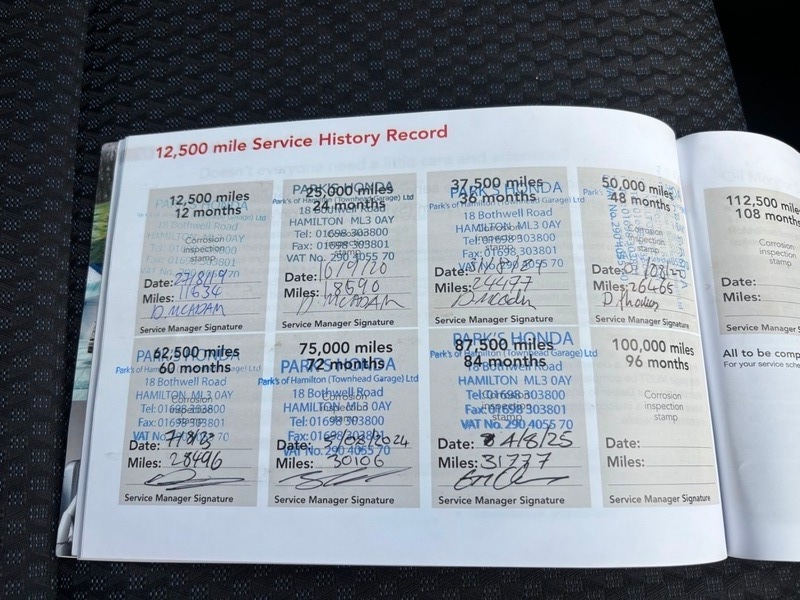 12,500 mile Service History Record
12,500 miles
12 months
Corrosion
inspection
stamp
Date: 27/8/19
Miles: 11634
D. MCADAM
Service Manager Signature
25,000 miles
24 months
PARK'S HONDA
Park's of Hamilton (Townhead Garage) Ltd
18 Bothwell Road
HAMILTON ML3 0AY
Tel: 01698 303800
Fax: 01698 303801
VAT No. 290 4055 70
Date: 16/9/20
Miles: 18590
D. MCADAM
Service Manager Signature
37,500 miles
36 months
PARK'S HONDA
Park's of Hamilton (Townhead Garage) Ltd
18 Bothwell Road
HAMILTON ML3 0AY
Tel: 01698 303800
Fax: 01698 303801
VAT No. 290 4055 70
Date:
Miles: 24497
Service Manager Signature
50,000 miles
48 months
Date:
Miles: 26465
D. Thomas
Service Manager Signature
62,500 miles
60 months
PARK'S HONDA
Park's of Hamilton (Townhead Garage) Ltd
18 Bothwell Road
HAMILTON ML3 0AY
Tel: 01698 303800
Fax: 01698 303801
VAT No. 290 4055 70
Date: 7/8/23
Miles: 28496
Service Manager Signature
75,000 miles
72 months
PARK'S HONDA
Park's of Hamilton (Townhead Garage) Ltd
18 Bothwell Road
HAMILTON ML3 0AY
Tel: 01698 303800
Fax: 01698 303801
VAT No. 290 4055 70
Date: 5/08/2024
Miles: 30106
Service Manager Signature
87,500 miles
84 months
PARK'S HONDA
Park's of Hamilton (Townhead Garage) Ltd
18 Bothwell Road
HAMILTON ML3 0AY
Tel: 01698 303800
Fax: 01698 303801
VAT No. 290 4055 70
Date: 4/8/25
Miles: 31777
Service Manager Signature
100,000 miles
96 months
Corrosion
inspection
stamp
Date:
Miles:
Service Manager Signature
112,500 miles
108 months
Corrosion
inspection
stamp
Date:
Miles:
Service Manager S
All to be comp
For your service sche